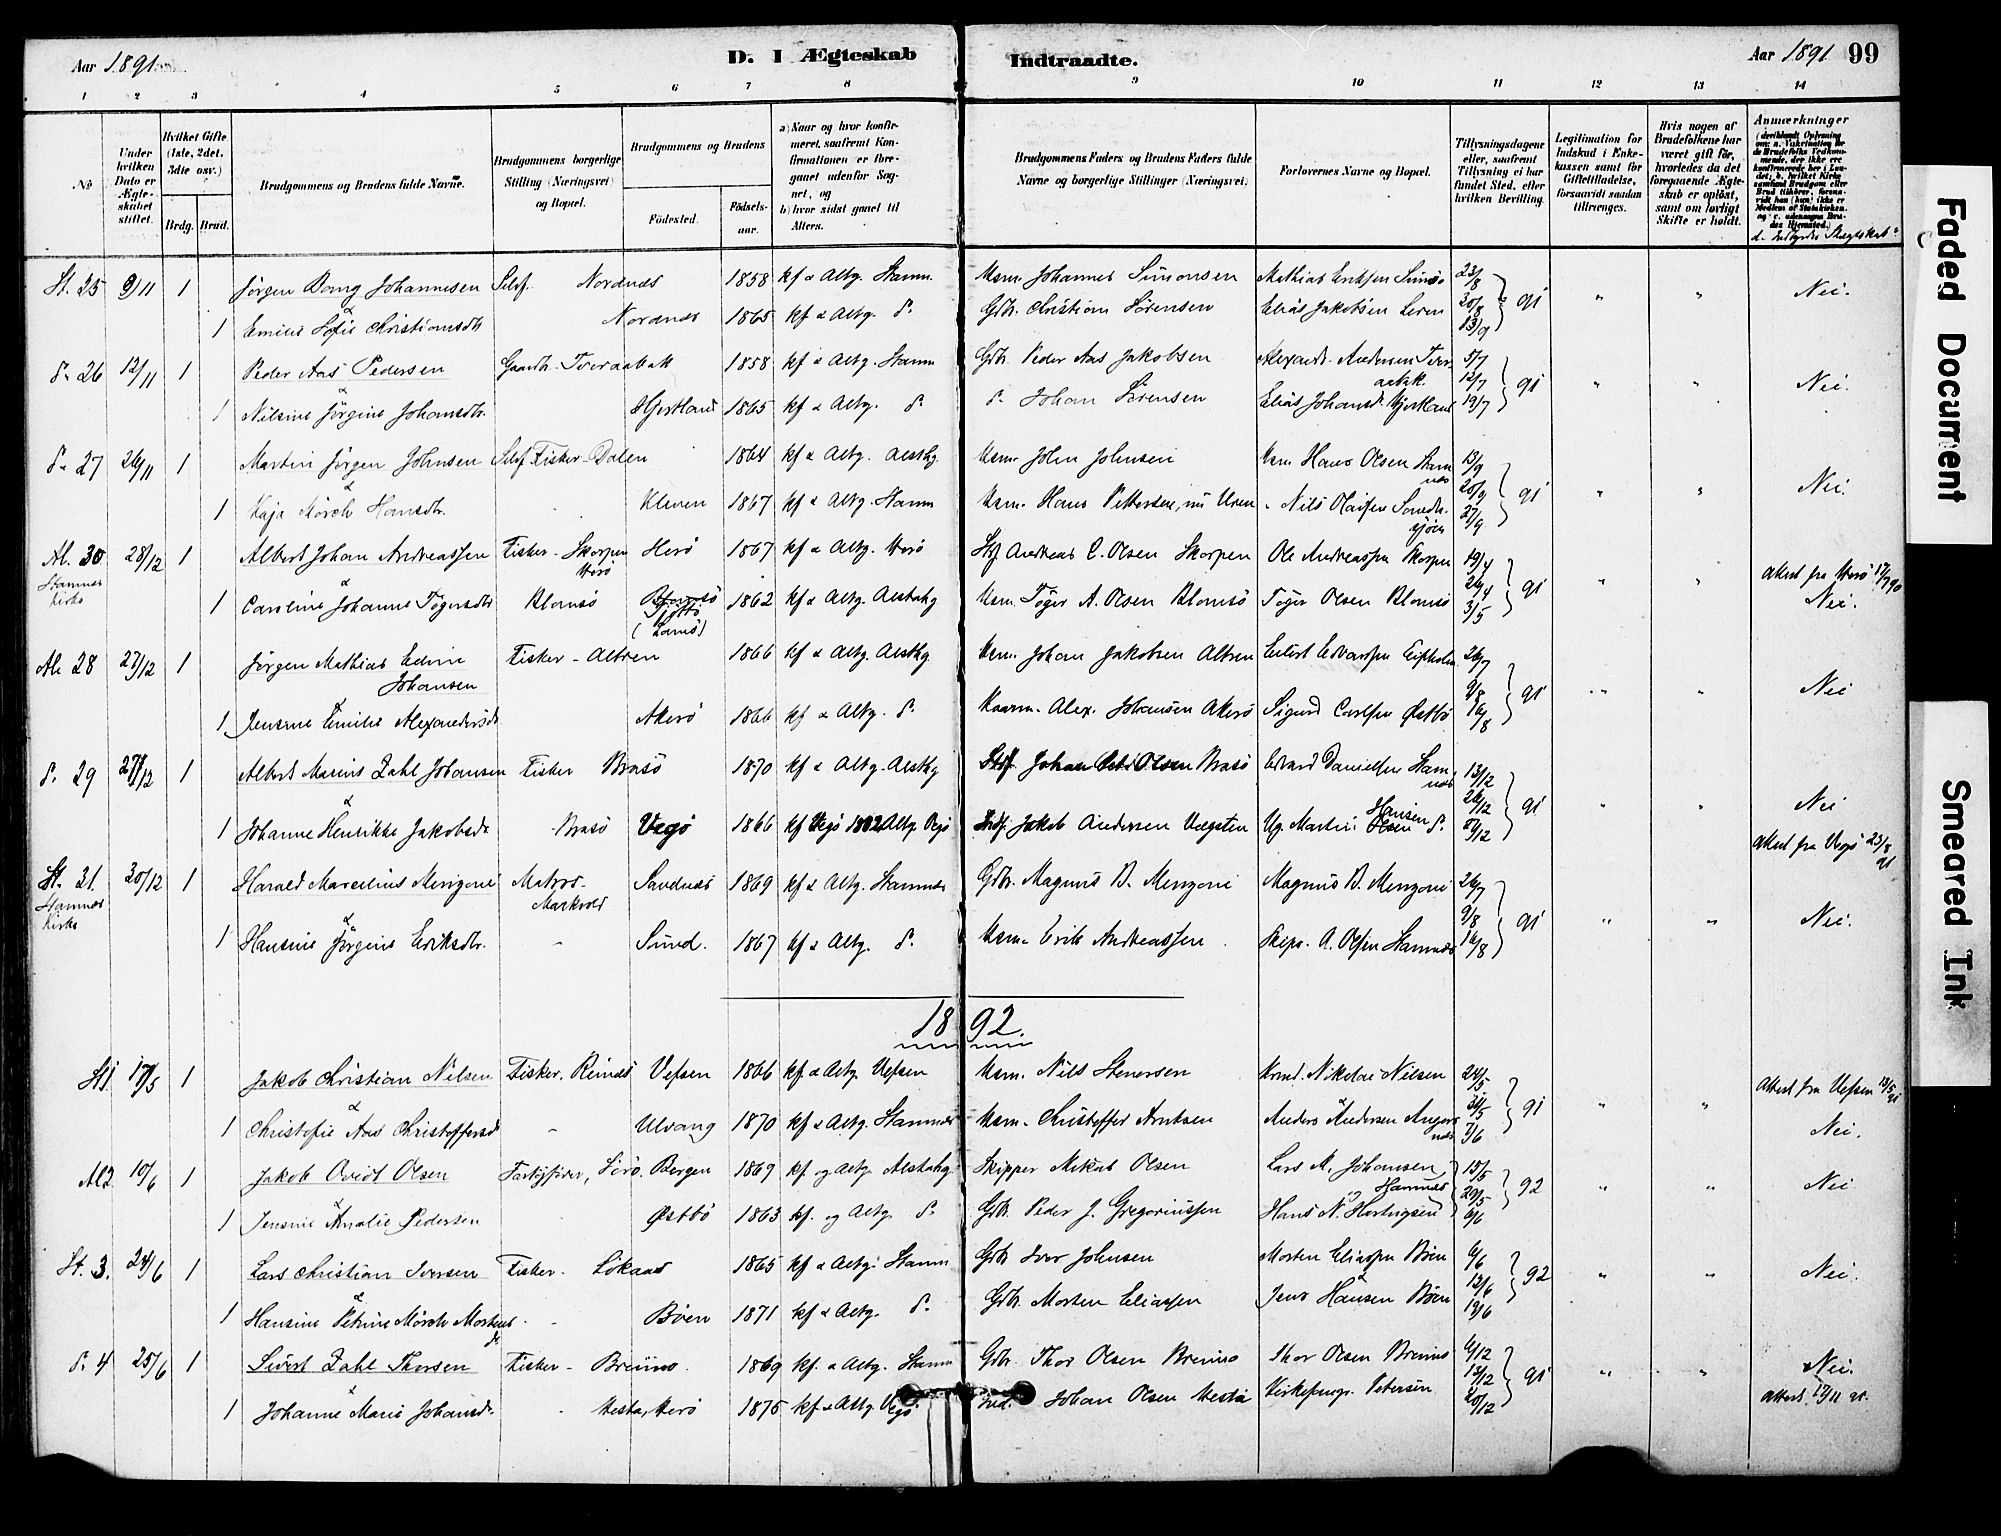 Aar 1891
D. I Ægteskab
Indtraadte.
Aar 1891 99
1 2 3 4 5 6 7 8 9 10 11 12 13 14
No
Under hvilken Dato er Ægteskabet stiftet.
Hvilket Gifte (1ste, 2det, 3die osv.)
Brdg. Brud.
Brudgommens og Brudens fulde Navne.
Brudgommens borgerlige Stilling (Næringsvei) og Bopæl.
Brudgommens og Brudens
Fødested.
Fødselsaar.
a) Naar og hvor konfirmeret, saafremt Konfirmationen er foregaaet udenfor Sognet, og
b) hvor sidst gaaet til Alters.
Brudgommens Faders og Brudens Faders fulde Navne og borgerlige Stillinger (Næringsvei)
Forlovernes Navne og Bopæl.
Tillysningsdagene eller, saafremt Tillysning ei har fundet Sted, efter hvilken Bevilling.
Legitimation for Indskud i Enkekassen samt for Giftetilladelse, forsaavidt saadan tiltrænges.
Hvis nogen af Brudefolkene har været gift før, hvorledes da det foregaaende Ægteskab er opløst, samt om lovligt Skifte er holdt.
Anmærkninger
St. 25 9/11 1 Jørgen Dong Johannesen Selvf. Nordnæs 1858 kf & Altg. Stamn. Usm. Johannes Simonsen Mathias Eriksen 23/8 " " Nei.
&
1 Emilie Sofie Christiansdtr Nordnæs 1865 kf & Altg. do Gdbr. Christian Sørensen Elias Jakobsen Leren 30/8 13/9 91
do 26 12/11 1 Peder Aas Pedersen Gaardbr. Tveraabak 1858 kf & Altg. Stamn Gdbr. Peder Aas Jakobsen Alexandr. Andersen Tveraabak 5/7 12/7 91 " " Nei.
&
1 Nilsine Jørgine Johansdtr. Hjertland 1865 kf & Altg. do do Johan Sørensen Elias Johansd. Hjertland 19/7
do 27 26/11 1 Martin Jørgen Johnsen Selvf. Fisker - Dalen 1864 kf & Altg. Alsthg Usm. John Johnsen Usm. Hans Olsen Stamnæs 13/9
&
1 Kaja Mørch Hansdtr. Kleven 1867 kf & Altg. Stamn Usm. Hans Pettersen, nu Uren " Nils Olaisen Sandnessjøen 20/9 27/9 91 " " Nei.
Al. 30 28/12 1 Albert Johan Andreassen Fisker - Skorpen Herø Herø 1867 kf & Altg. Herø Andreas C. Olsen Skorpen Ole Andreassen Skorpen 19/4 Attest fra Herø 17/7 90
Stamnes Kirke
&
1 Caroline Johanne Tøgersdtr Blomsø 1862 kf & Altg. Alstahg Usm. Tøger A. Olsen Blomsø Tøger Olsen Blomsø 26/4 3/5 91 " " Nei.
Al. 28 27/12 1 Jørgen Mathias Edvin Johansen Fisker - Altren 1866 kf & Altg. Alsthg Usm. Johan Jakobsen Altren 26/7
1 Jensine Emilie Alexandersdtr Akerø 1866 kf & Altg. do Alex. Johansen Akerø Sigurd Carlsen Østbø 9/8 16/8 91 " " Nei
do 29 27/12 1 Albert Marius Zahl Johansen Fisker Brasø 1870 kf & Altg. Alsthg Johan Olsen Brasø Edvard Danielsen Hamnæs 13/12
&
1 Johanne Henrikke Jakobsdr Brasø Vegø 1866 kf Vegø 1882 Altg. Vegø Jakob Andersen Martin Hansen do 26/12 91 " " Nei
Attest fra Vegø 23/8 91
St. 31. 30/12 1 Harald Marcelius Menzoni Matros - Markvold Sandnæs 1869 kf & Altg. Stamnæs Gdbr. Magnus B. Menzoni Magnus B. Menzoni 26/7
Stamnes Kirke
&
1 Hansine Jørgine Eriksdtr. - Sund. 1867 kf & Altg. do Usm. Erik Andreassen Skips. A. Olsen Stamnæs 9/8 16/8 91 " " Nei.
1892.
St 1 17/5 1 Jakob Christian Nilsen Fisker. Reinæs Vefsen 1866 kf & Altg. Vefsen Usm. Nils Stenersen Nikolai Nilsen 24/5 Attest fra Vefsen 13/5 91
&
1 Christofie Aas Christoffersd - Ulvang 1870 kf & Altg. Stamnæs Usm. Christoffer Arntsen Anders Andersen Angersnæs 31/5 7/6 91 " " Nei.
Al 2 10/6 1 Jakob Ovidt Olsen Bergen 1869 kf og Altg. Alstahg Skipper Mikal Olsen Lars M. Johansen, Hamnæs 15/5 92 " " Nei
&
1 Jensine Amalie Pedersen Østbø 1863 kf. og Altg. do Gdb. Peder J. Gregoriussen Hans N. Hartvigsen 29/5 6/6
St. 3. 24/6 1 Lars Christian Iversen Fisker. Løkaas 1865 kf & Altg. Stamn Gdb. Iver Johnsen Morten Eliassen Bøen 6/6 92 " " Nei.
&
1 Hansine Petrine Mørch Mortensdr Bøen 1871 kf & Altg. do Gdb. Morten Eliassen Jens Hansen Bøen 12/6 19/6
do 4 25/6 1 Sivert Zahl Thorsen Fisker - Breimo 1869 kf. & Altg. Stamn Gdb. Thor Olsen Breimo Thor Olsen Breimo 6/12 91 " " Nei.
&
1 Johanne Marie Johansdr - Hestø, Herø 1875 kf & Altg. Vegø Ind. Johan Olsen Kirkesang. Petersen 13/12 20/12 Attest. 17/11 91.
Faded Document
Smeared Ink